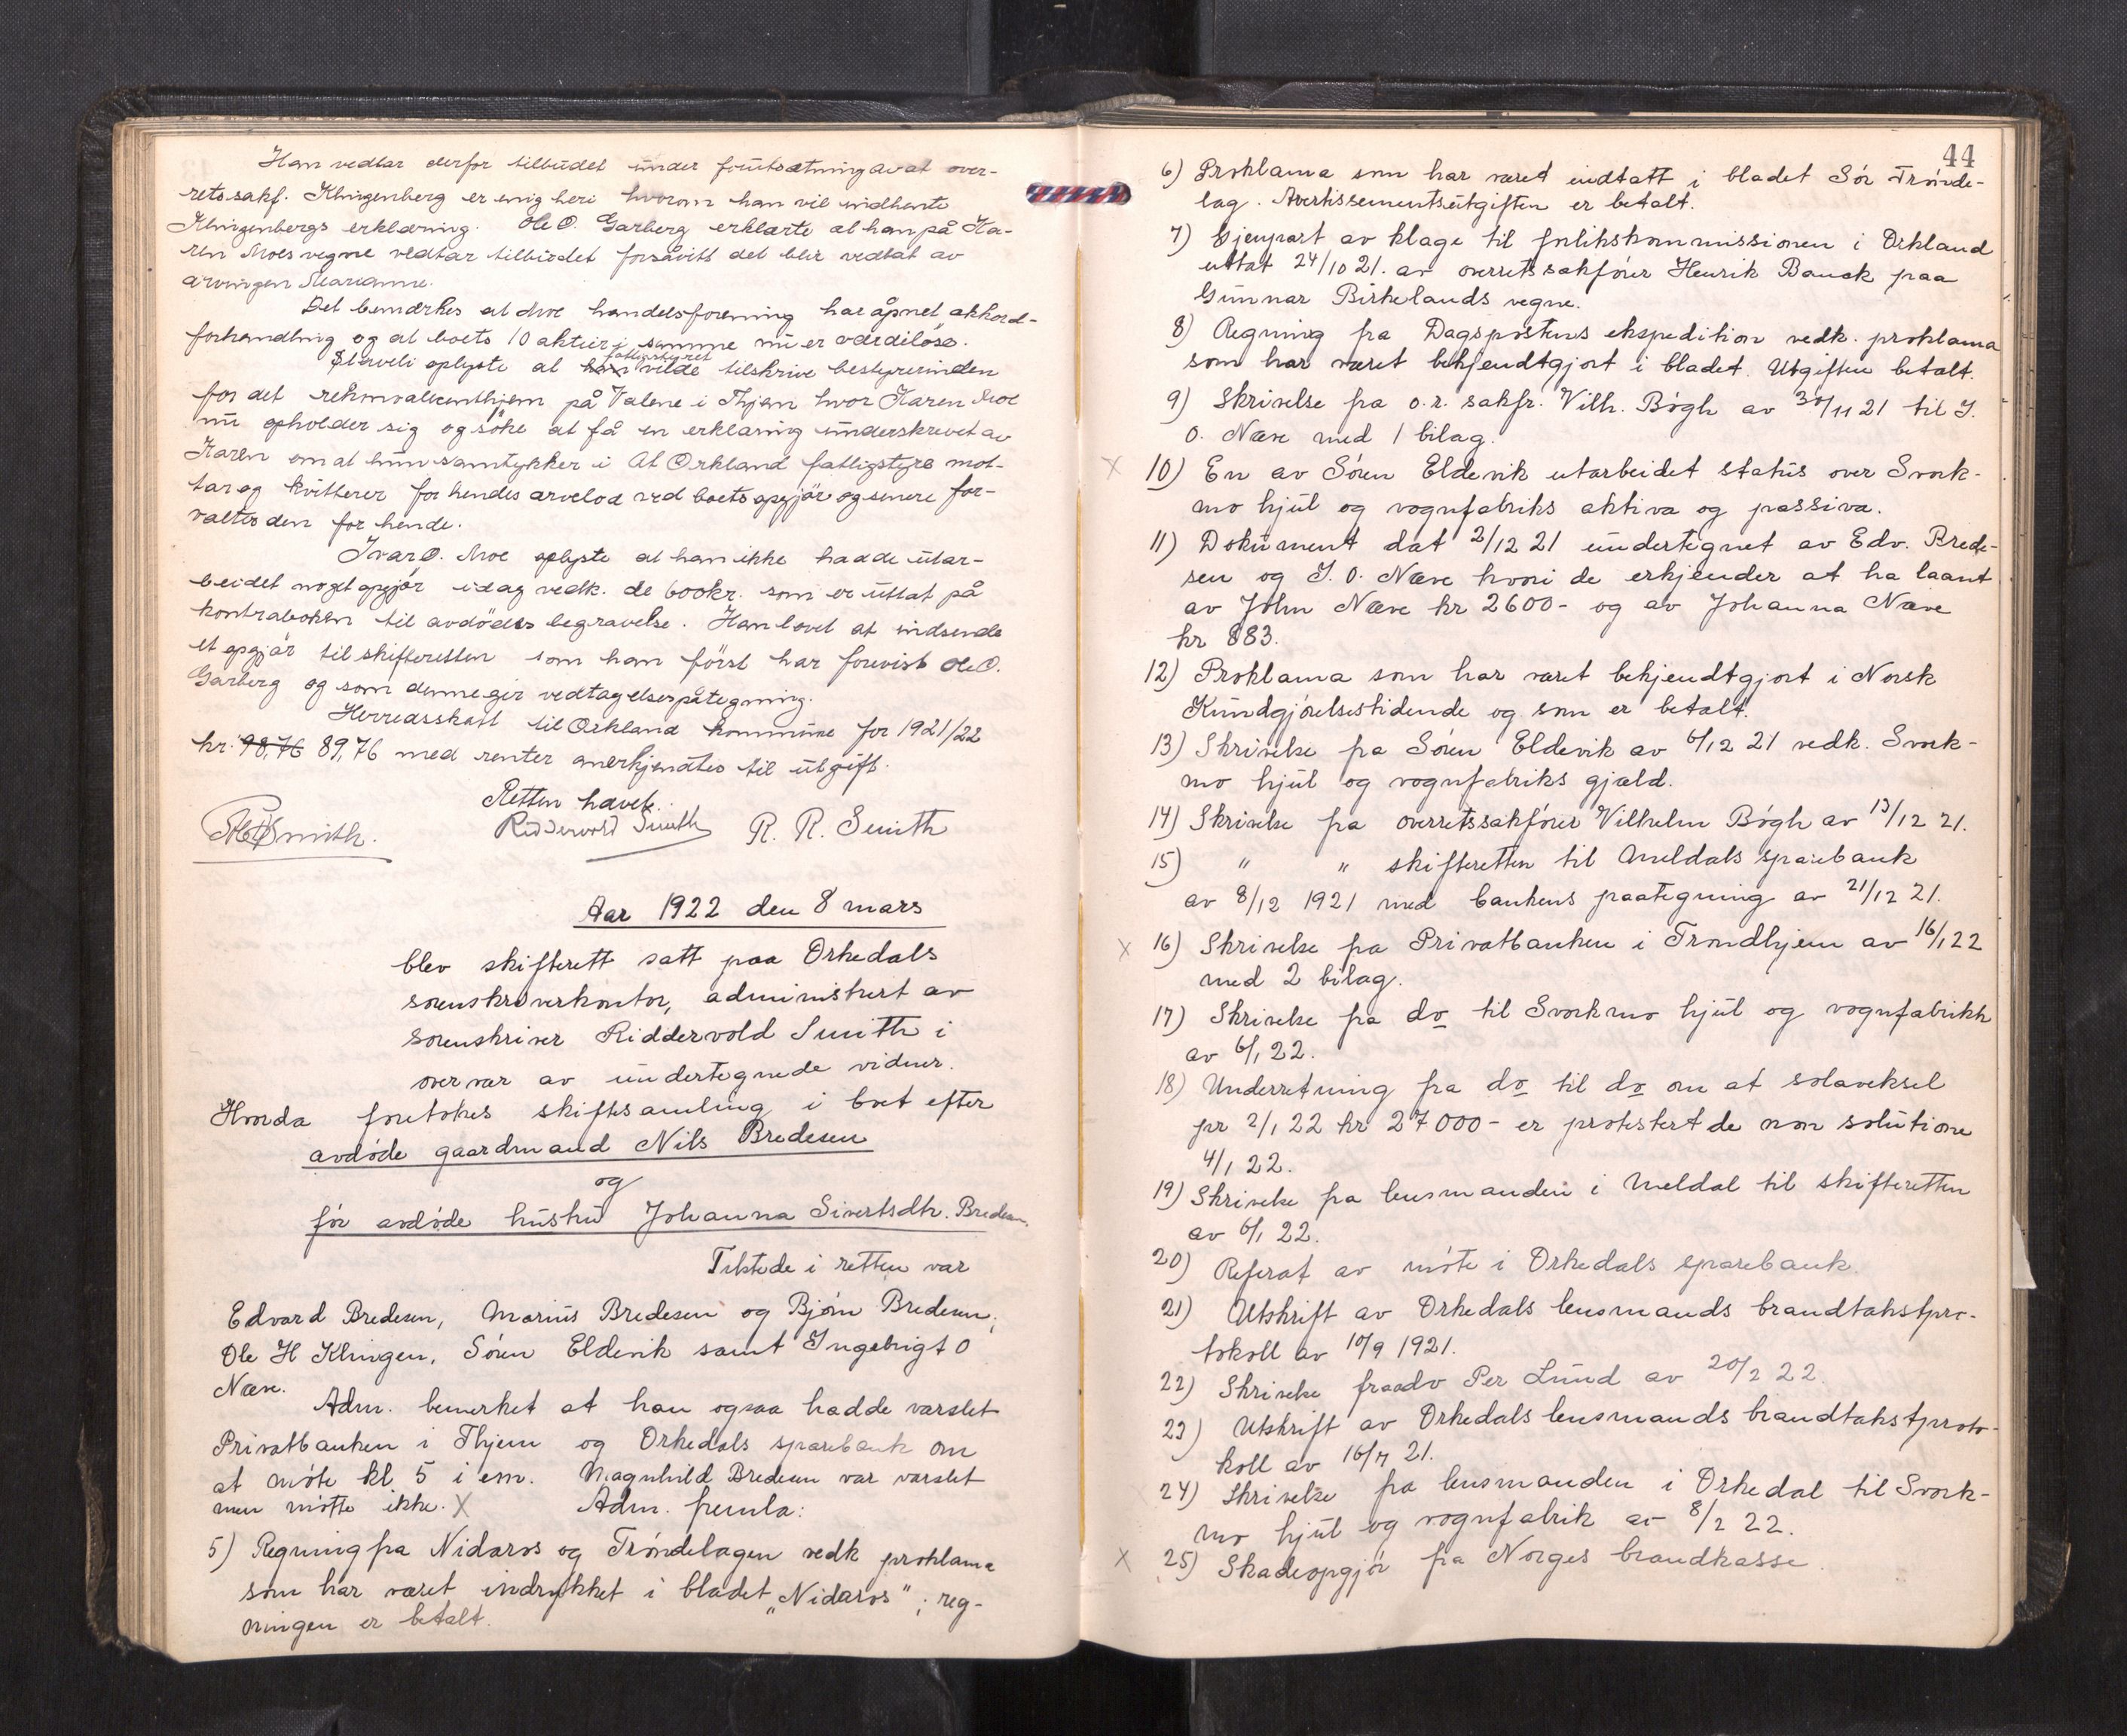 Han vedtar derfor tilbudet under forutsætning av at over-
rets.sakf. Klingenberg er enig heri hvorom han vil indhente
Klingenbergs erklæring. Ole O. Garberg erklærte at han på Ka-
ren Moes vegne vedtar tilbudet forsåvitt det blir vedtat av
arvingen Marianne.
Det bemerkes at Moe handelsforening har åpnet akkord-
forhandling og at boets 10 aktier i samme nu er værdiløse.
fattigstyret
oplyste at han vilde tilskrive bestyrerinden
for det rekonvalecenthjem på i Thjem hvor Karen Moe
nu opholder sig og søke at få en erklæring underskrevet av
Karen om at hun samtykker i at Orkland fattigstyre mot-
tar og kvitterer for hendes arvelod ved boets opgjør og senere for-
valter den for hende.
Ivar O. Moe oplyste at han ikke hadde utar-
beidet noget opgjør idag vedk. de 600 kr. som er uttat på
kontraboken til avdødes begravelse. Han lovet at indsende
et opgjør til skifteretten som han først har forevist Ole O.
Garberg og som denne gir vedtagelsespåtegning.
Herredsskatt til Orkland kommune for 1921/22
kr. 98,76 89,76 med renter anerkjendtes til utgift.
Retten hævet.
Smith. Riddervold Smith R. R. Smith
Aar 1922 den 8 mars
blev skifterett satt paa Orkedals
sorenskriverkontor, administrert av
sorenskriver Riddervold Smith i
overvær av undertegnede vidner.
Hvorda foretokes skiftesamling i boet efter
avdøde gaardmand Nils Bredesen
og
før avdøde hustru Johanna Sivertsdtr. Bredesen.
Tilstede i retten var
Edvard Bredesen, Marius Bredesen og Bjørn Bredesen,
Ole H Klingen, Søren Eldevik samt Ingebrigt O
Næve.
Adm. bemerket at han ogsaa hadde varslet
Privatbanken i Thjem og Orkedals sparebank om
at møte kl 5 i em. Magnhild Bredesen var varslet
men møtte ikke. X Adm. fremla:
5) Regning fra Nidaros og Trøndelagen vedk proklama
som har været indrykket i bladet „Nidaros"; reg-
ningen er betalt.
44
6) Proklama som har været indtatt i bladet Sør Trønde-
lag. Avertissementsutgiften er betalt.
7) Gjenpart av klage til forlikskommissionen i Orkland
uttat 24/10 21. av overretssakfører Henrik Bauck paa
Gunnar Birkelands vegne.
8) Regning fra Dagspostens ekspedition vedk. proklama
som har været bekjendtgjort i bladet. Utgiften betalt.
9) Skrivelse fra o.r. sakfr. Vilh. Bøgh av 30/11 21 til I.
O. Næve med 1 bilag.
X 10) En av Søren Eldevik utarbeidet status over Svork-
mo hjul og vognfabriks aktiva og passiva.
11) Dokument dat 2/12 21 undertegnet av Edv. Brede-
sen og I. O. Næve hvori de erkjender at ha laant
av John Næve kr 2600- og av Johanna Næve
kr 883.
12) Proklama som har været bekjendtgjort i Norsk
Kundgjørelsestidende og som er betalt.
13) Skrivelse fra Søren Eldevik av 6/12 21 vedk. Svork-
mo hjul og vognfabriks gjæld.
14) Skrivelse fra overretssakfører Vilhelm Bøgh av 13/12 21.
15) " " skifteretten til Meldals sparebank
av 8/12 1921 med bankens paategning av 21/12 21.
X 16) Skrivelse fra Privatbanken i Trondhjem av 16/1 22
med 2 bilag.
17) Skrivelse fra do til Svorkmo hjul og vognfabrikk
av 6/1 22.
18) Underretning fra do til do om at solaveksel
pr 2/1 22 kr 27000- er protestert de non solutione
4/1 22.
19) Skrivelse fra lensmanden i Meldal til skifteretten
av 6/1 22.
20) Referat av møte i Orkedals sparebank.
21) Utskrift av Orkedals lensmands brandtakstpro-
tokoll av 10/9 1921.
22) Skrivelse fra adv Per Lund av 20/2 22.
23) Utskrift av Orkedals lensmands brandtakstproto-
koll av 21.
24) Skrivelse fra lensmanden i Orkedal til Svork-
mo hjul og vognfabrik av 8/2 22.
X 25) Skadeopgjør fra Norges brandkasse.